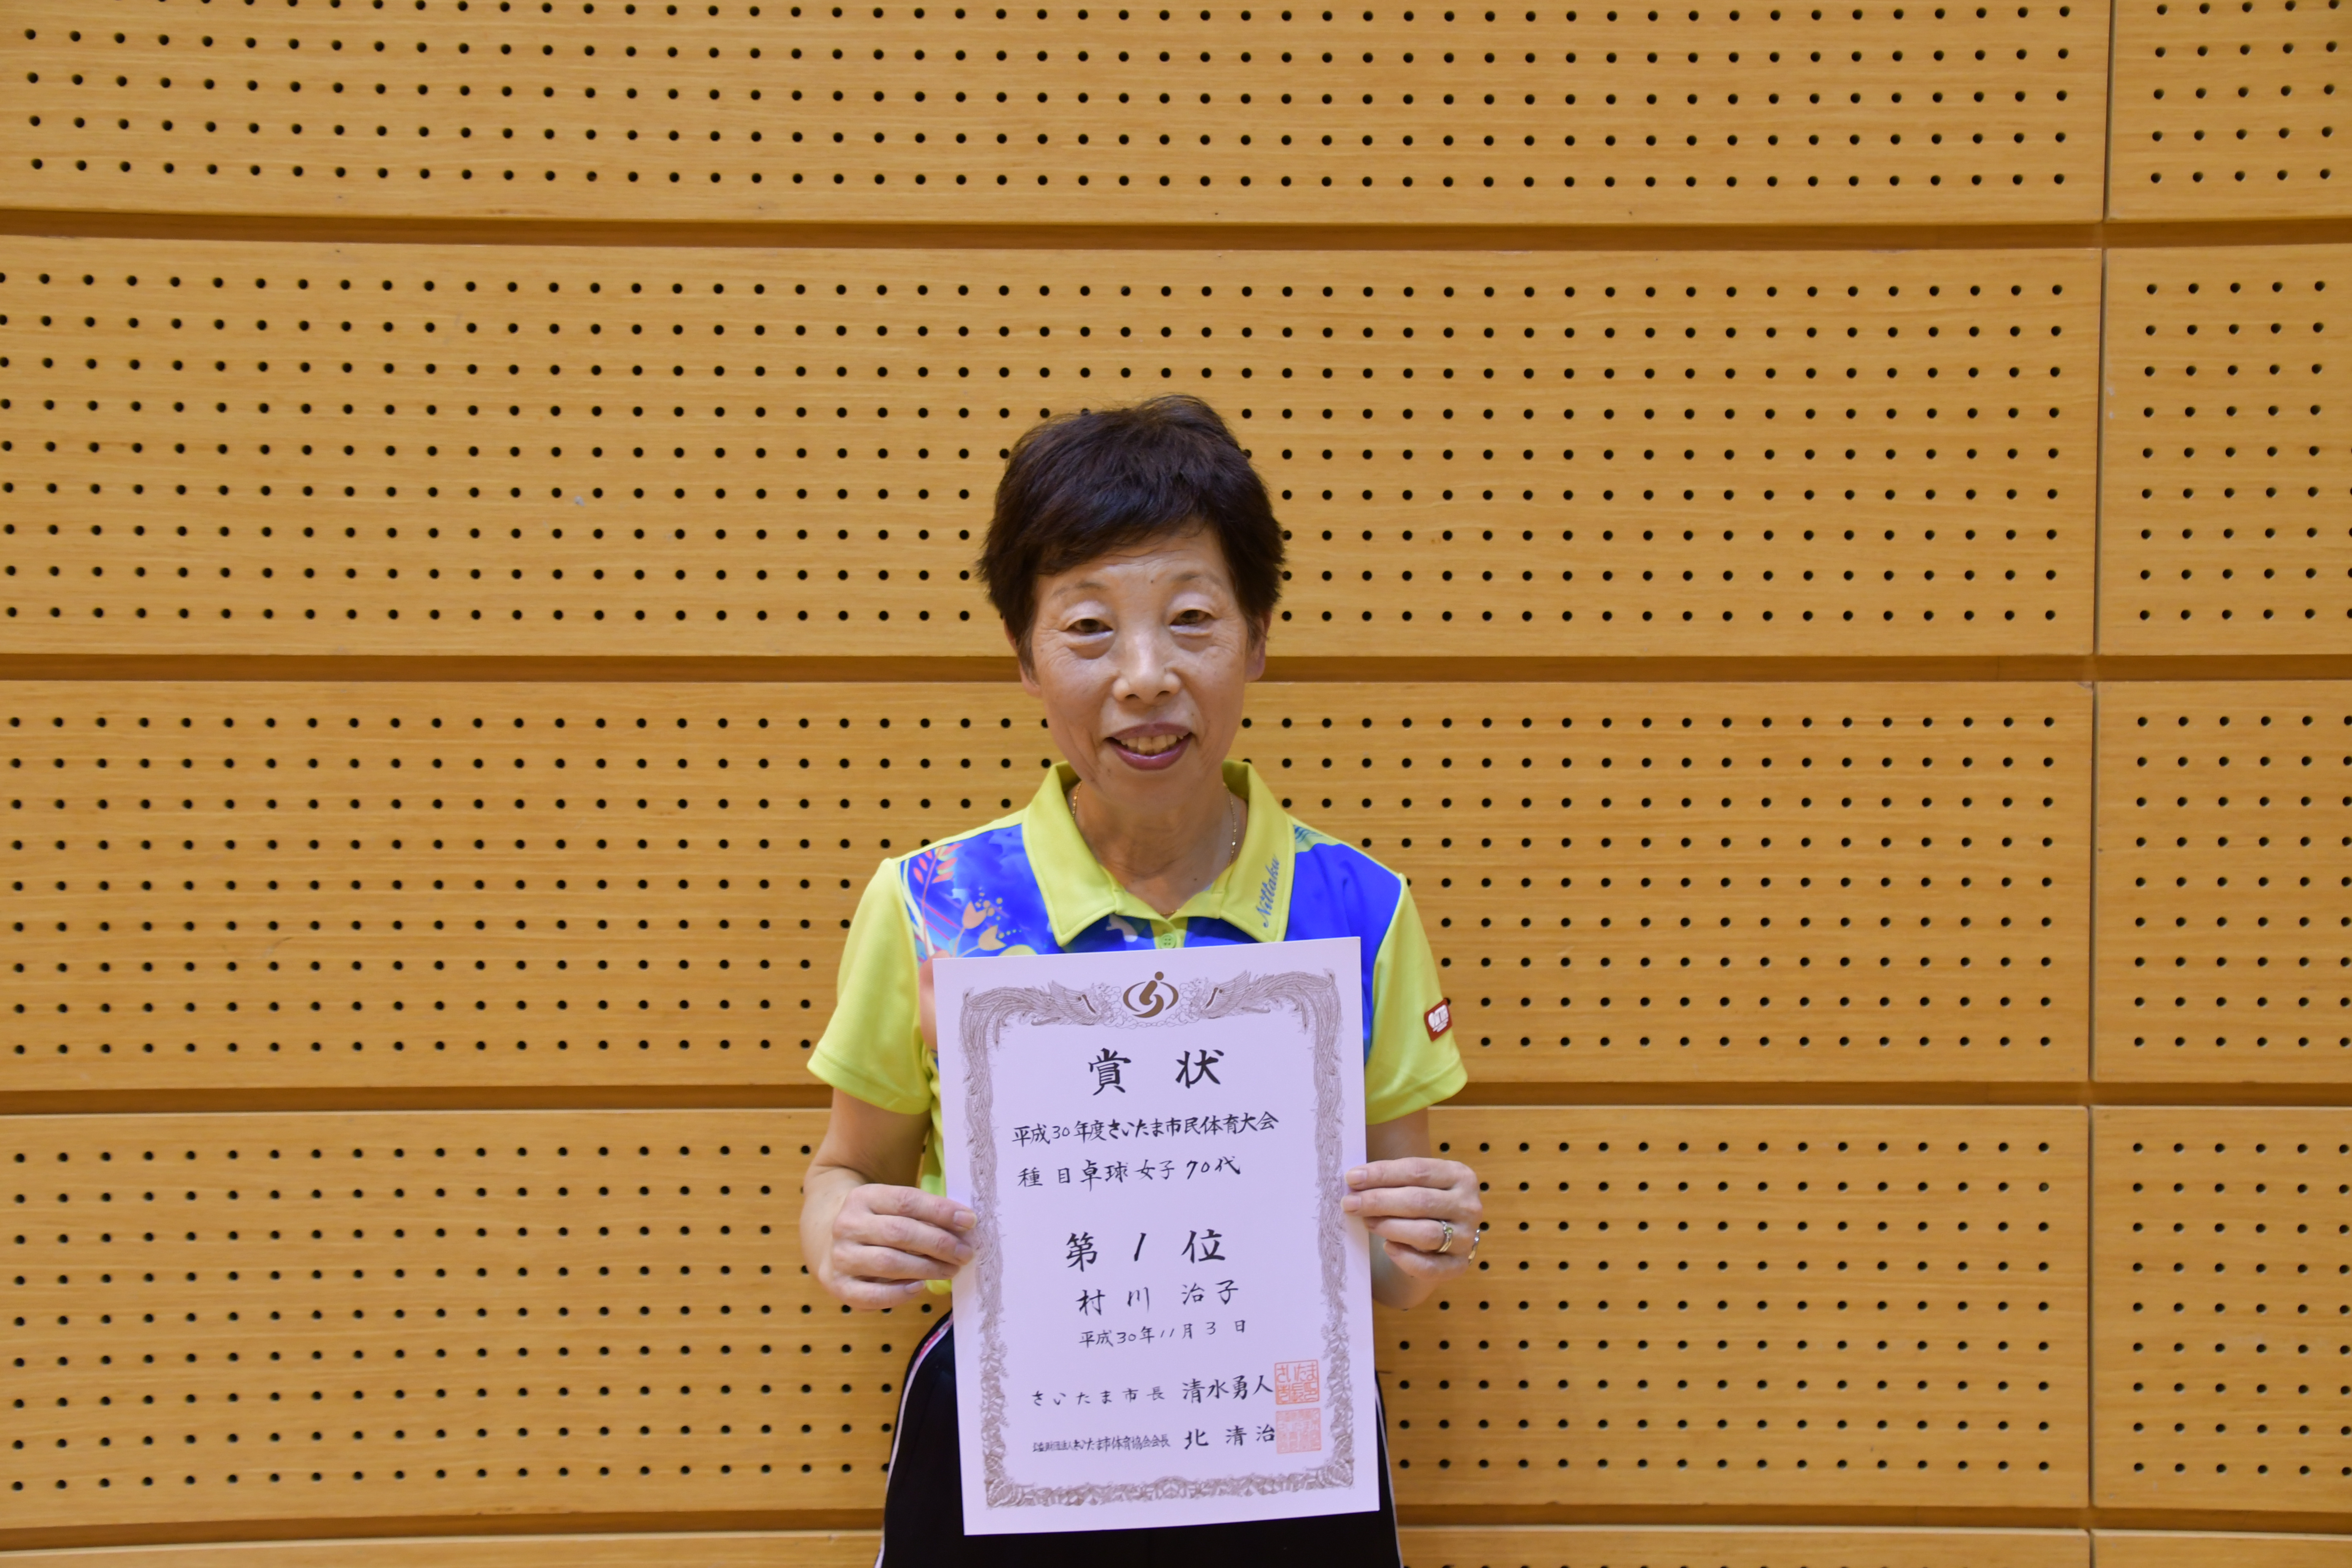 Nittaku
賞状
平成30年度さいたま市民体育大会
種目卓球女子70代
第1位
村川 治子
平成30年11月3日
さいたま市長 清水勇人
公益財団法人さいたま市体育協会会長 北 清治